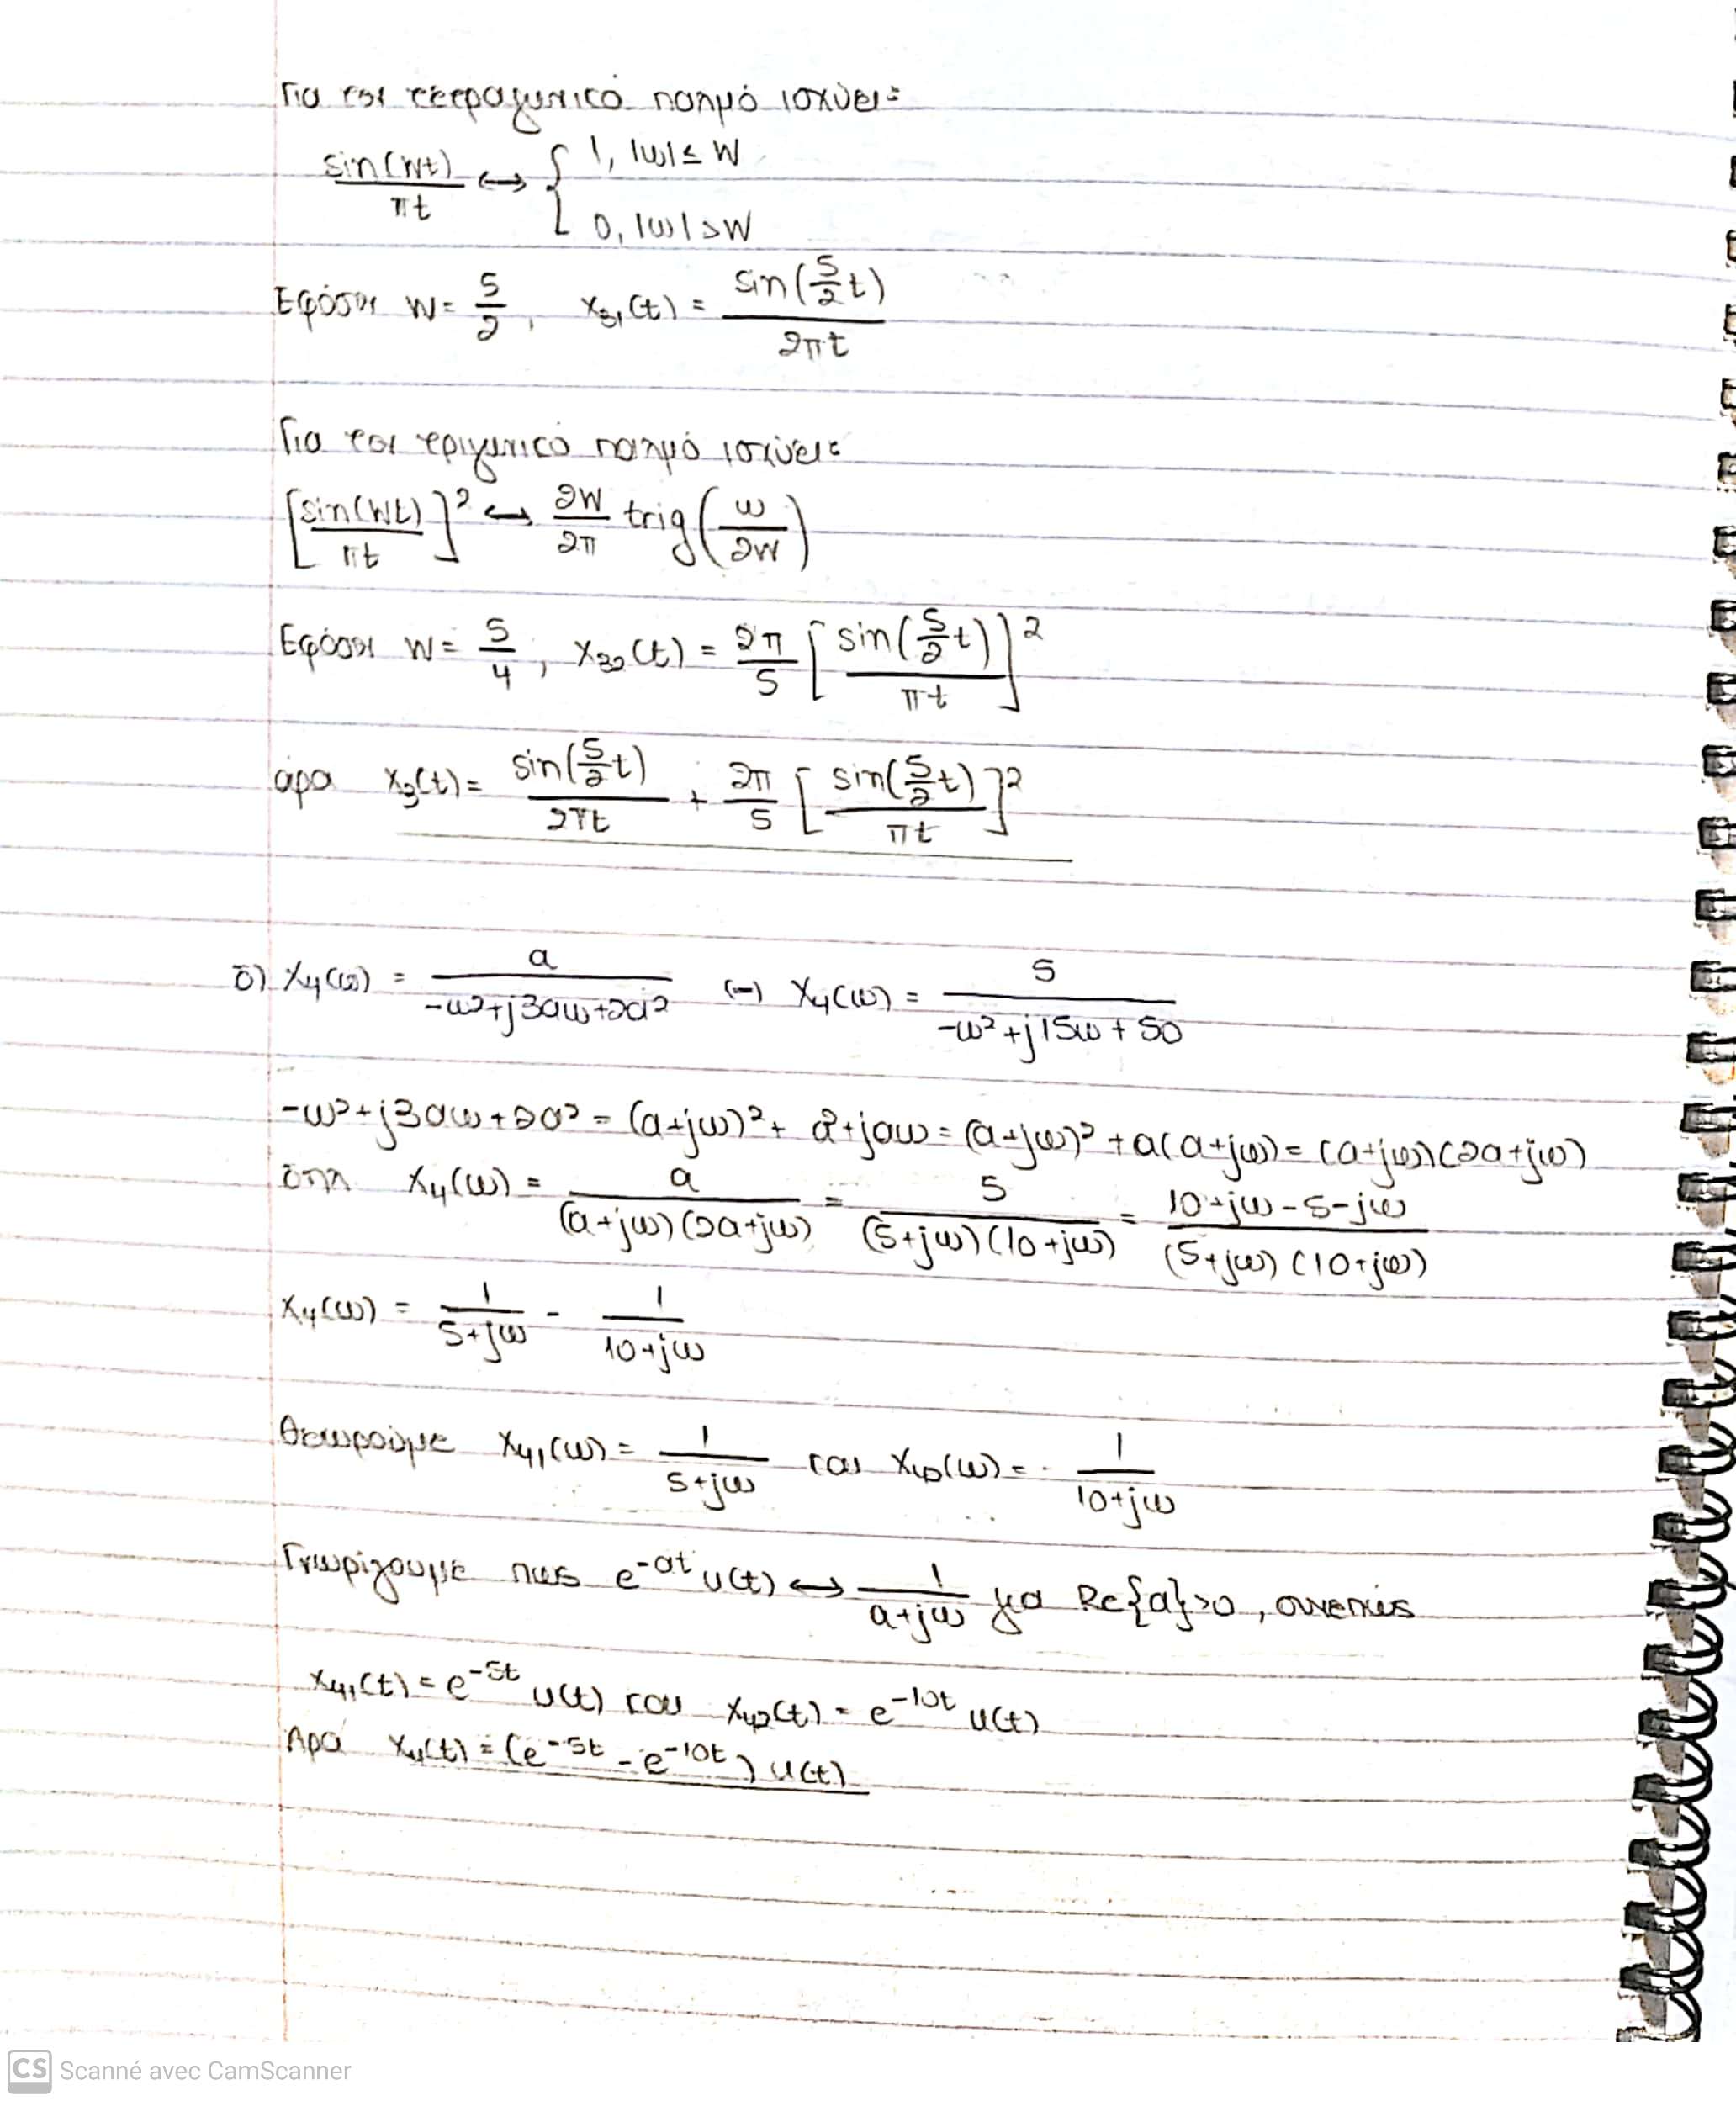 Για τον τετραγωνικό παλμό ισχύει:
sin(Wt)/πt ↔ { 1, |ω| ≤ W
0, |ω| > W
Εφόσον W = 5/2, x₃₁(t) = sin(5/2 t)/2πt
Για τον τριγωνικό παλμό ισχύει:
[sin(Wt)/πt]² ↔ 2W/2π trig(ω/2W)
Εφόσον W = 5/4, x₃₂(t) = 2π/5 [sin(5/2 t)/πt]²
άρα x₃(t) = sin(5/2 t)/2πt + 2π/5 [sin(5/2 t)/πt]²
δ) X₄(ω) = a/(-ω²+j3aω+2a²) (=) X₄(ω) = 5/(-ω²+j15ω+50)
-ω²+j3aω+2a² = (a+jω)² + a²+jaω = (a+jω)² + a(a+jω) = (a+jω)(2a+jω)
δηλ X₄(ω) = a/((a+jω)(2a+jω)) = 5/((5+jω)(10+jω)) = (10+jω-5-jω)/((5+jω)(10+jω))
X₄(ω) = 1/(5+jω) - 1/(10+jω)
Θεωρούμε X₄₁(ω) = 1/(5+jω) και X₄₂(ω) = 1/(10+jω)
Γνωρίζουμε πως e^(-at) u(t) ↔ 1/(a+jω) για Re{a}>0, συνεπώς
x₄₁(t) = e^(-5t) u(t) και x₄₂(t) = e^(-10t) u(t)
Άρα x₄(t) = (e^(-5t) - e^(-10t)) u(t)
CS Scanné avec CamScanner